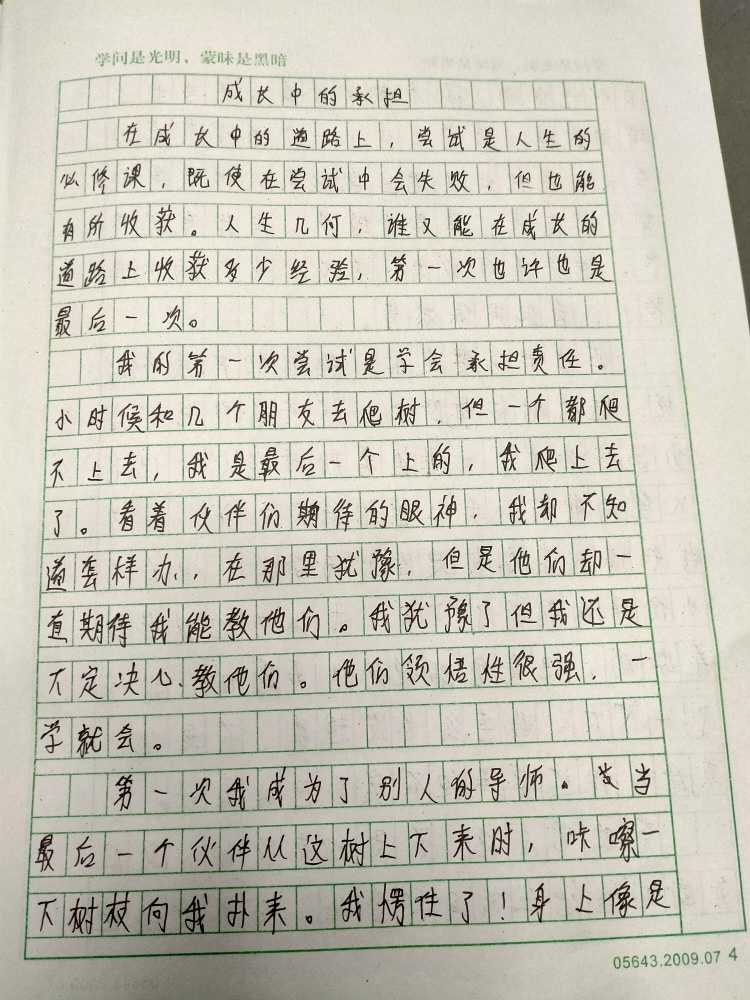 学问是光明、蒙昧是黑暗
成长中的承担
在成长中的道路上，尝试是人生的
必修课，既使在尝试中会失败，但也能
有所收获。人生几何，谁又能在成长的
道路上收获多少经验，第一次也许也是
最后一次。
我的第一次尝试是学会承担责任。
小时候和几个朋友去爬树，但一个都爬
不上去，我是最后一个上的，我爬上去
了。看着伙伴们期待的眼神，我却不知
道怎样办，在那里犹豫，但是他们却一
直期待我能教他们。我犹豫了但我还是
下定决心教他们。他们领悟性很强，一
学就会。
第一次我成为了别人的导师。当
最后一个伙伴从这树上下来时，咔嚓一
下树杖向我扑来。我愣住了！身上像是
05643.2009.07 4